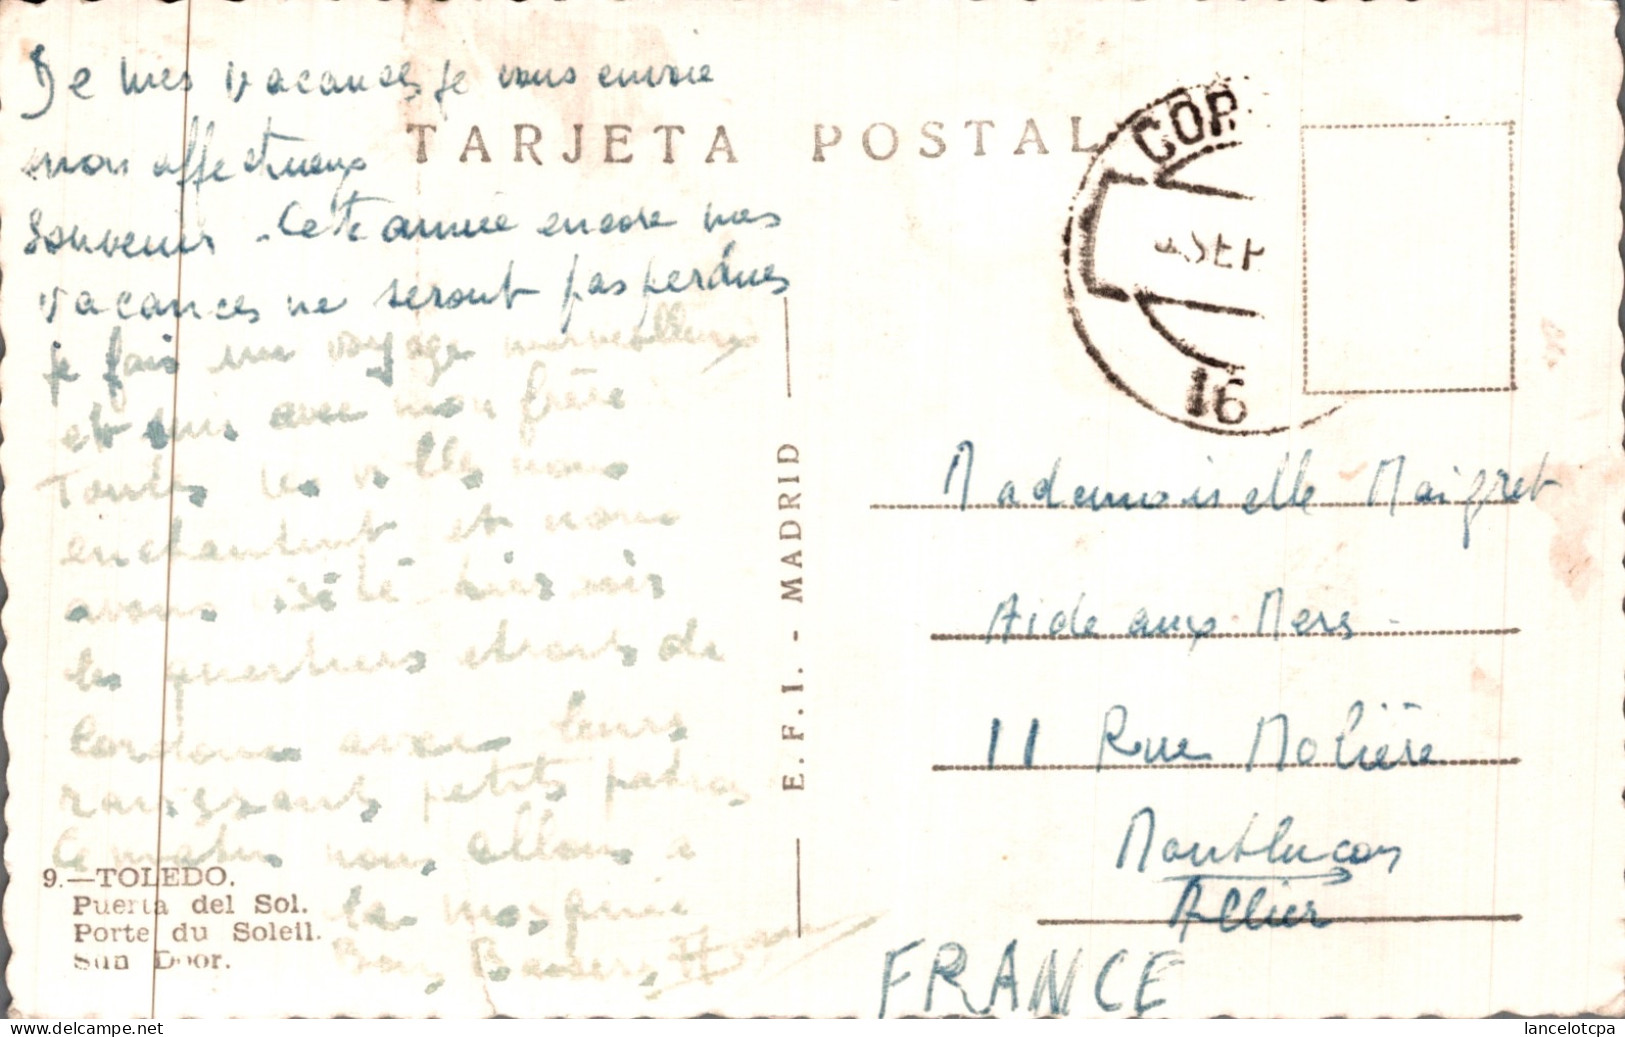 De mes vacances, je vous envoie
mon affectueux
souvenir. Cette année encore mes
vacances ne seront pas perdues
je fais un voyage merveilleux
et suis avec mon frère
Toutes les villes nous
enchantent et nous
avons visité hier soir
les quartiers étroits de
Cordoue avec leurs
ravissants petits patios
Ce matin nous allons à
la mosquée
Bons Baisers
TARJETA POSTAL
COR
SEP
16
E. F. I. - MADRID
Mademoiselle Maigret
Aide aux Mères
11 Rue Molière
Montluçon
Allier
FRANCE
9.—TOLEDO.
Puerta del Sol.
Porte du Soleil.
Sun Door.
www.delcampe.net
lancelotcpa